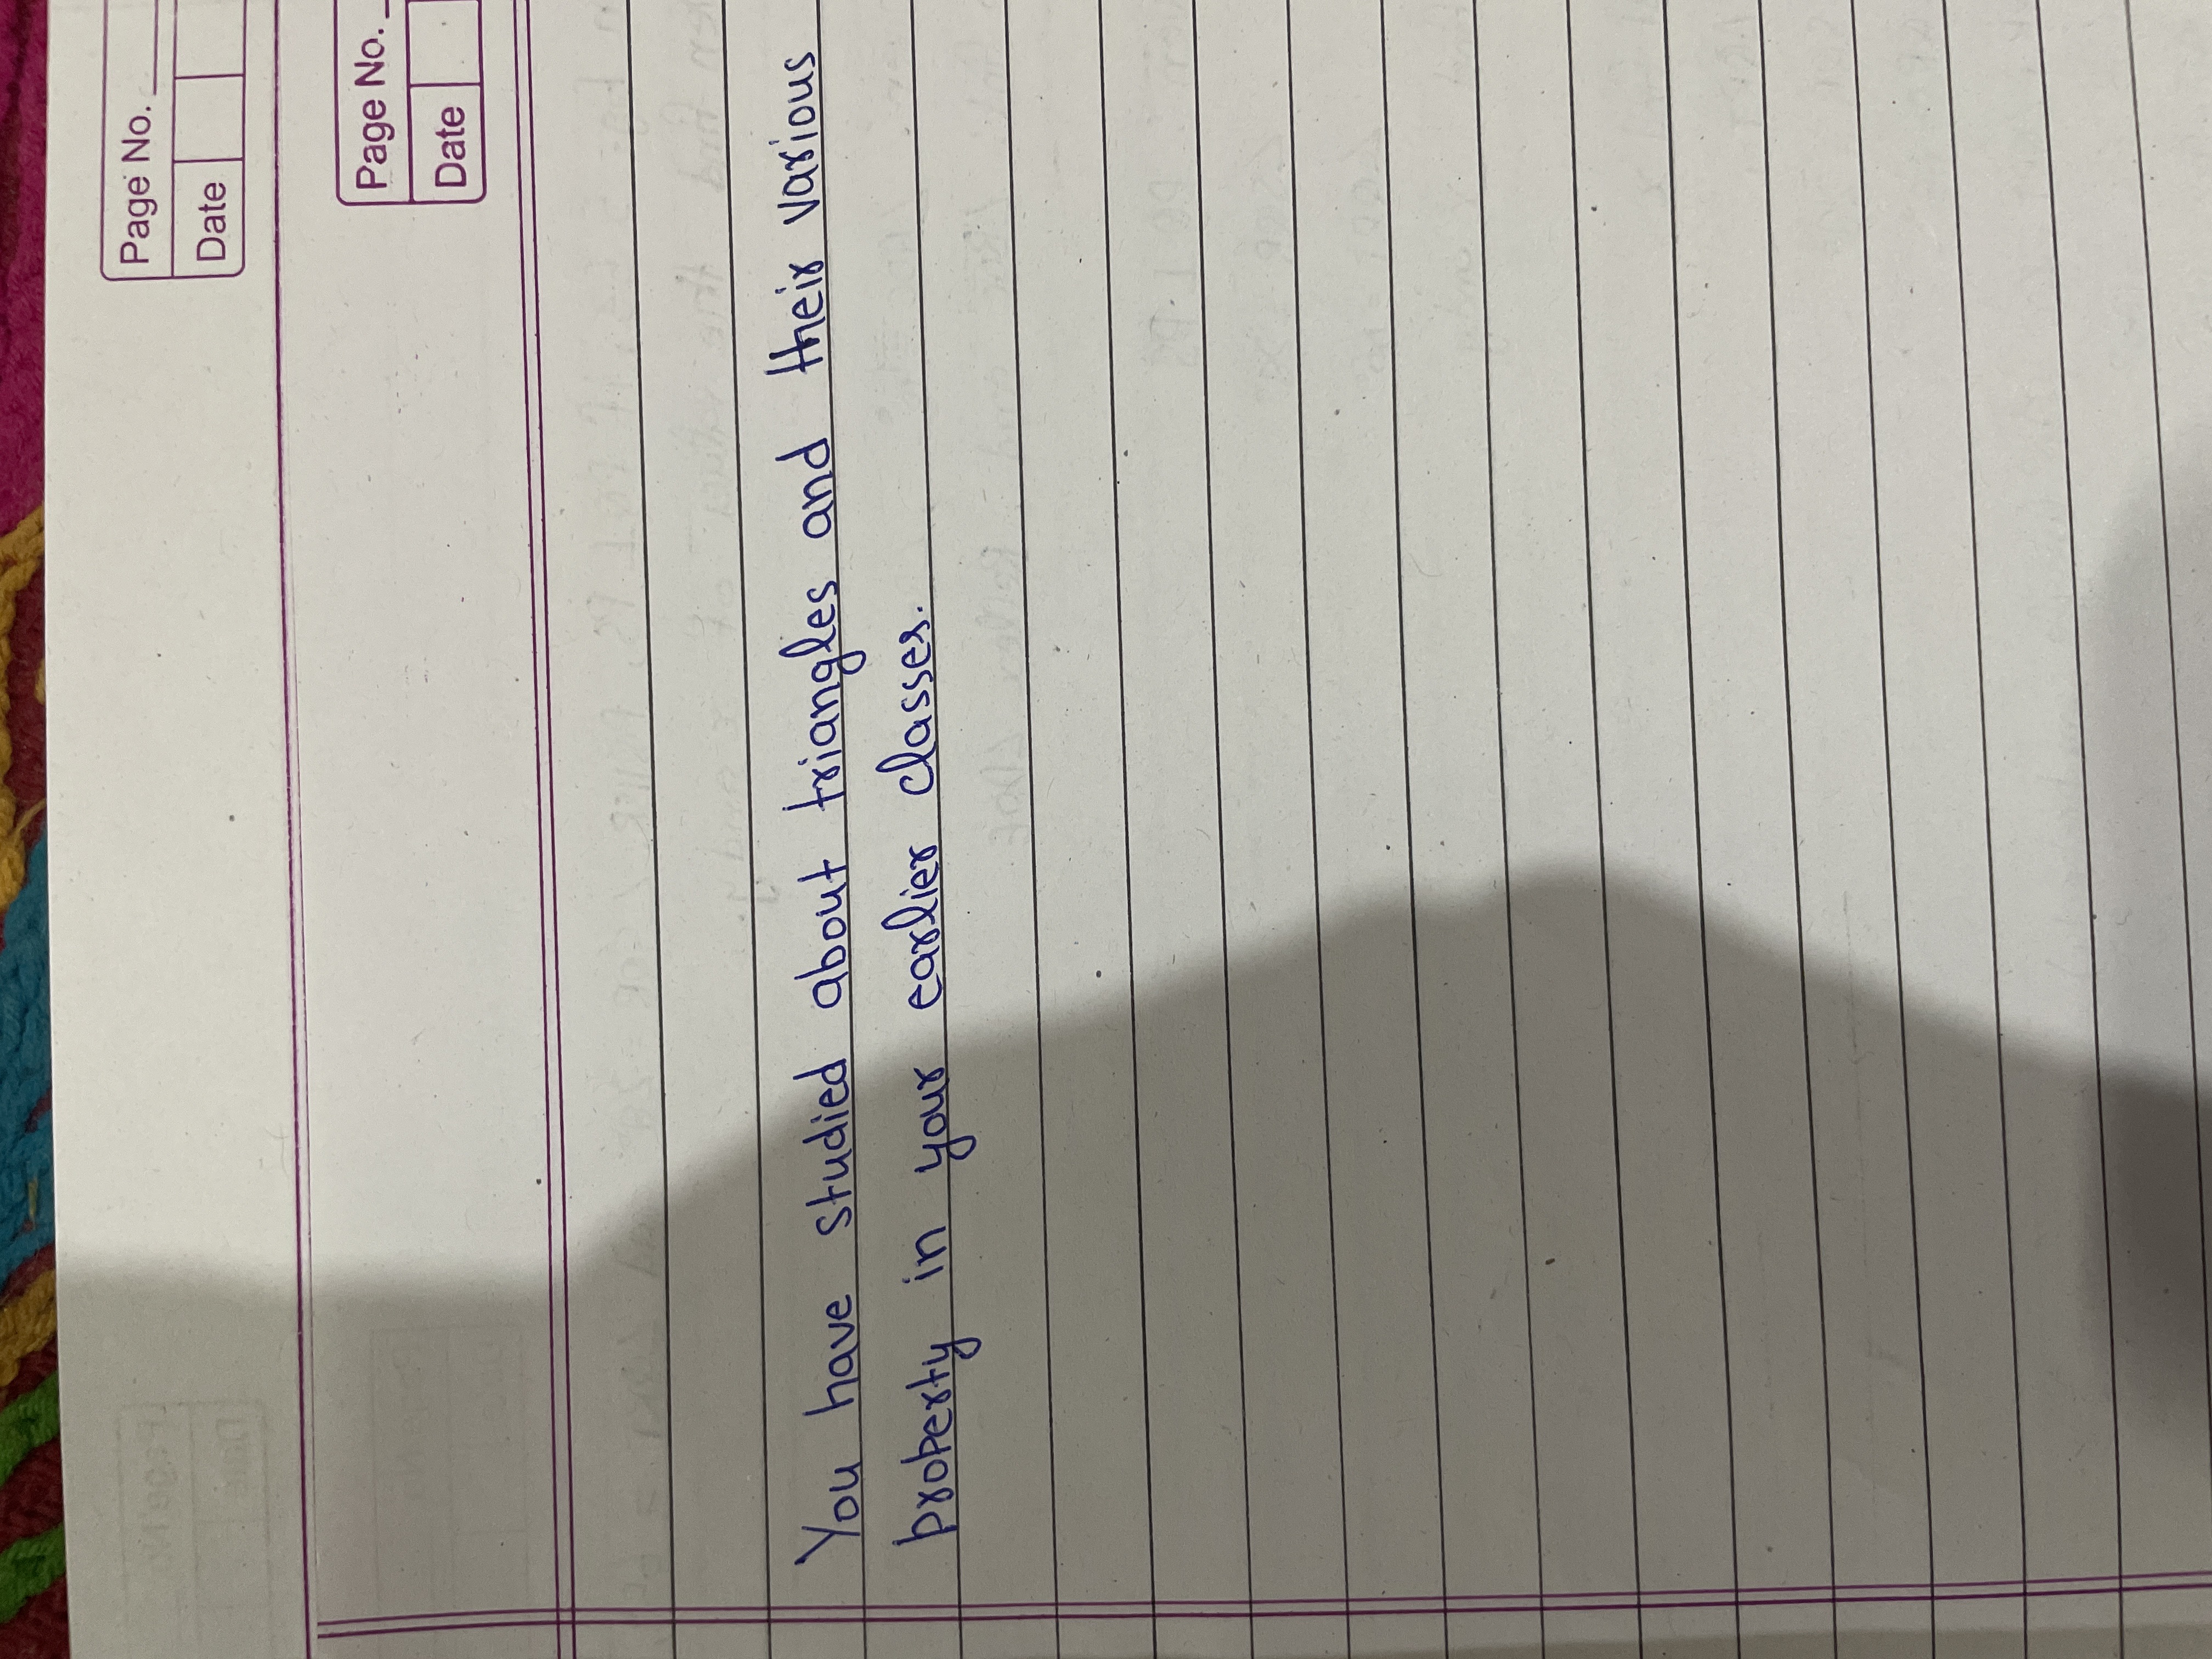 Page No.
Date
Page No.
Date
You have studied about triangles and their various
property in your earlier classes.